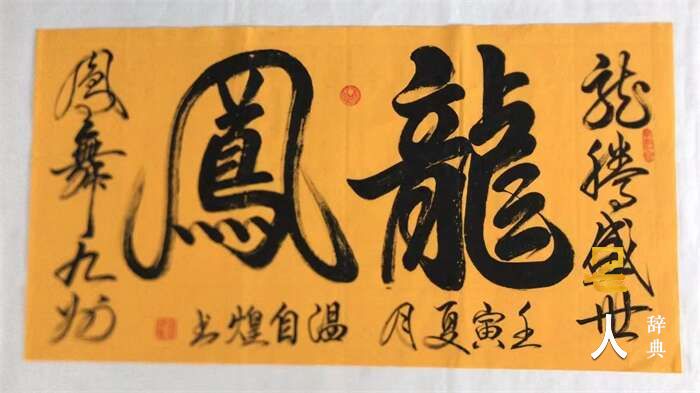 龍騰盛世
龍鳳
鳳舞九州
壬寅夏月 温自煌书
名人
辞典